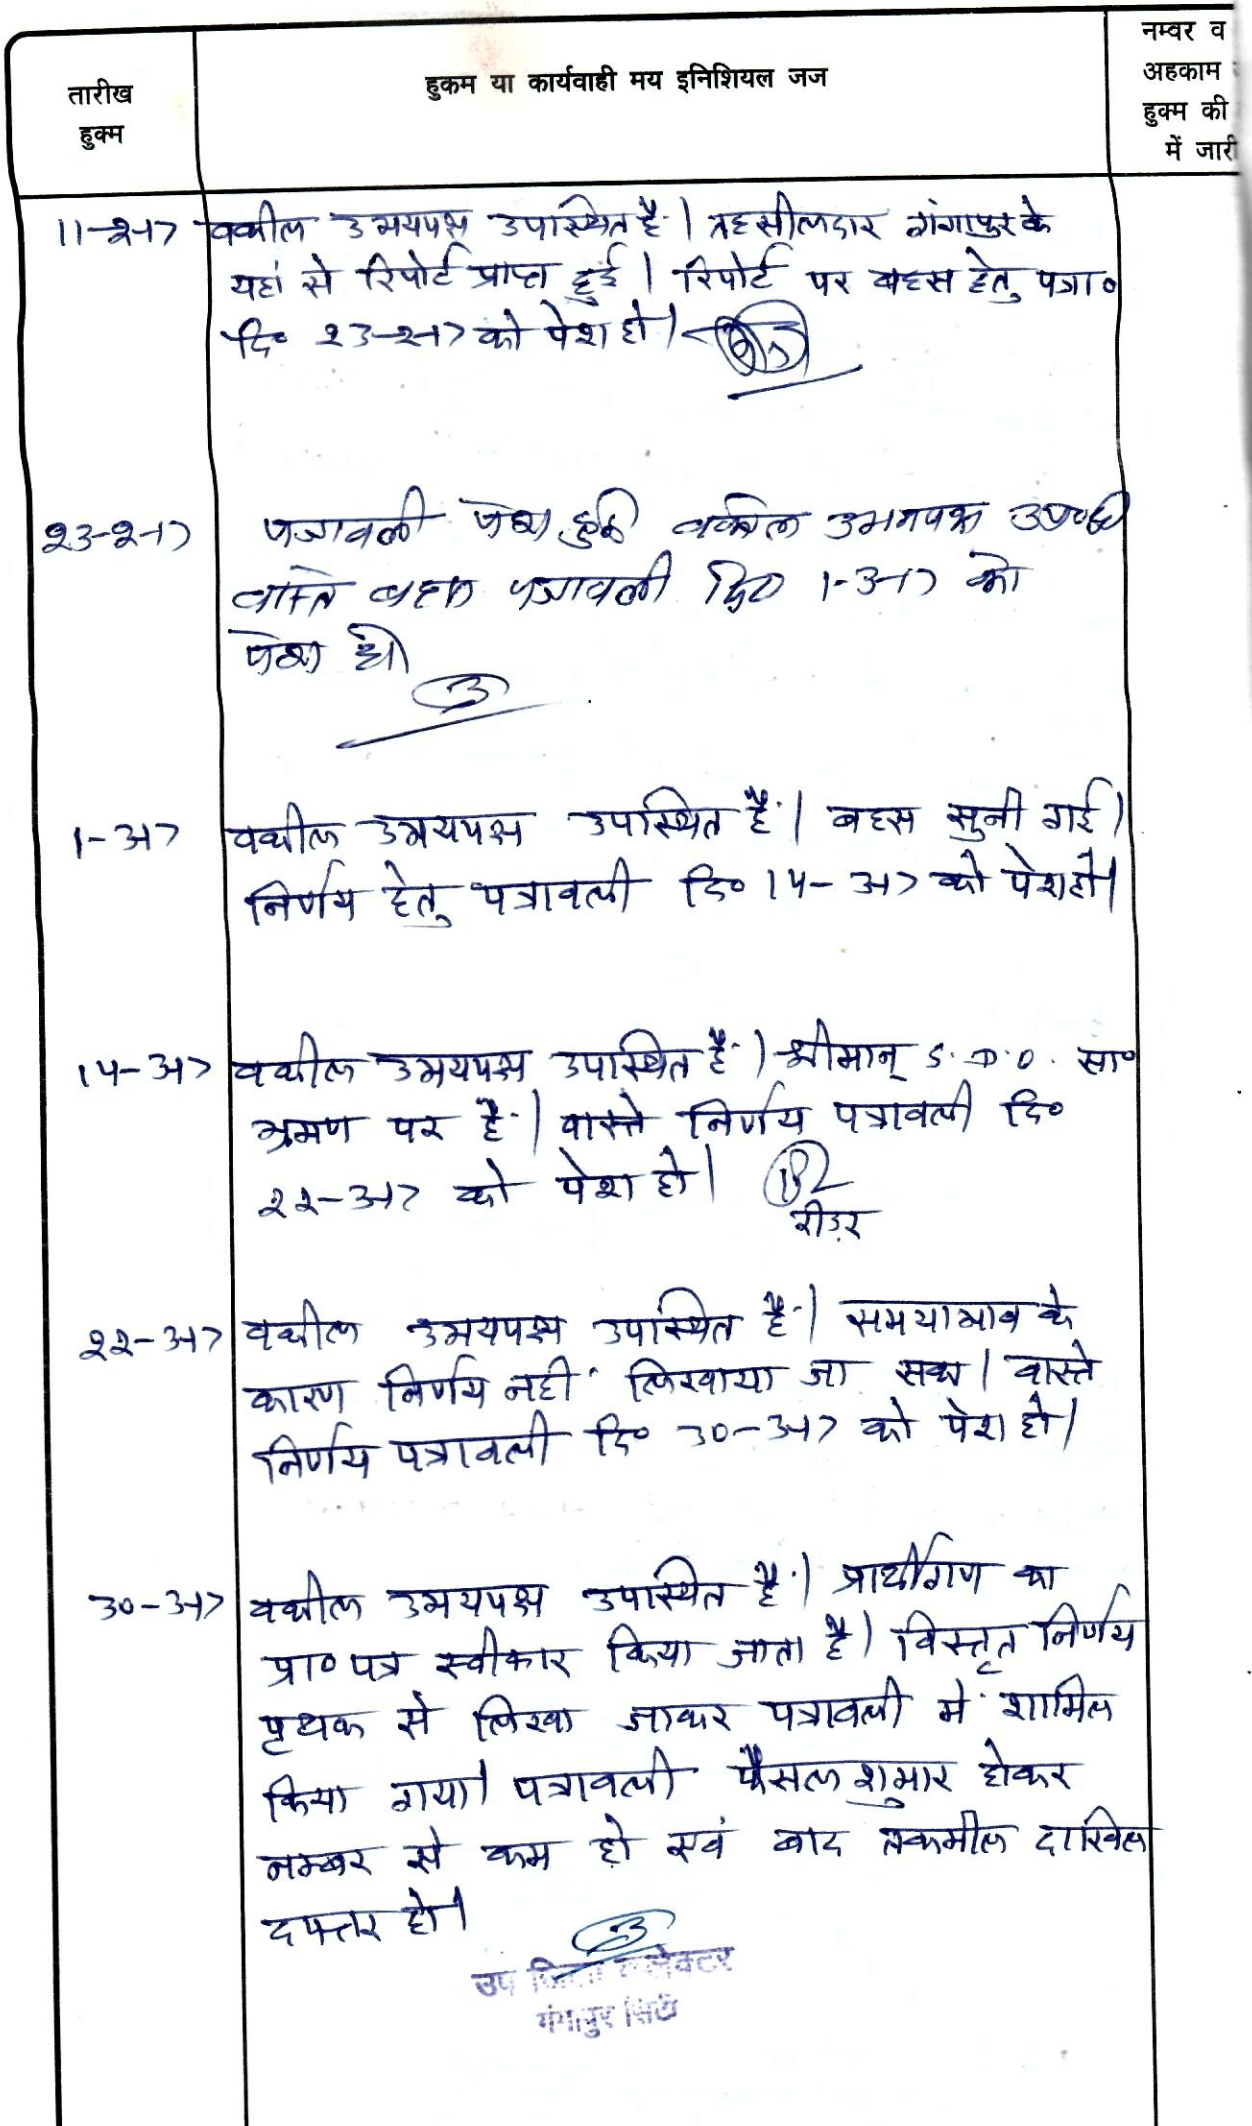 तारीख
हुक्म
हुकम या कार्यवाही मय इनिशियल जज
नम्बर व
अहकाम
हुक्म की
में जारी
11-2-17 वकील उभयपक्ष उपास्थित है। तहसीलदार गंगापुर के
यहां से रिपोर्ट प्राप्त हुई। रिपोर्ट पर बहस हेतु पत्रा०
दि० 23-2-17 को पेश हो।
23-2-17 पत्रावली पेश हुई वकील उभयपक्ष उप०
वास्ते बहस पत्रावली दि० 1-3-17 को
पेश हो
1-3-17 वकील उभयपक्ष उपास्थित है। बहस सुनी गई।
निर्णय हेतु पत्रावली दि० 14-3-17 को पेश हो।
14-3-17 वकील उभयपक्ष उपास्थित है। श्रीमान् S.D.O. सा०
भ्रमण पर है। वास्ते निर्णय पत्रावली दि०
22-3-17 को पेश हो।
रीडर
22-3-17 वकील उभयपक्ष उपास्थित है। समयाभाव के
कारण निर्णय नही लिखाया जा सका। वास्ते
निर्णय पत्रावली दि० 30-3-17 को पेश हो।
30-3-17 वकील उभयपक्ष उपास्थित है। प्रार्थीगण का
प्रा० पत्र स्वीकार किया जाता है। विस्तृत निर्णय
पृथक से लिखा जाकर पत्रावली में शामिल
किया गया। पत्रावली फैसल शुमार होकर
नम्बर से कम हो एवं बाद तकमील दाखिल
दफ्तर हो।
उप जिला कलेक्टर
गंगापुर सिटी